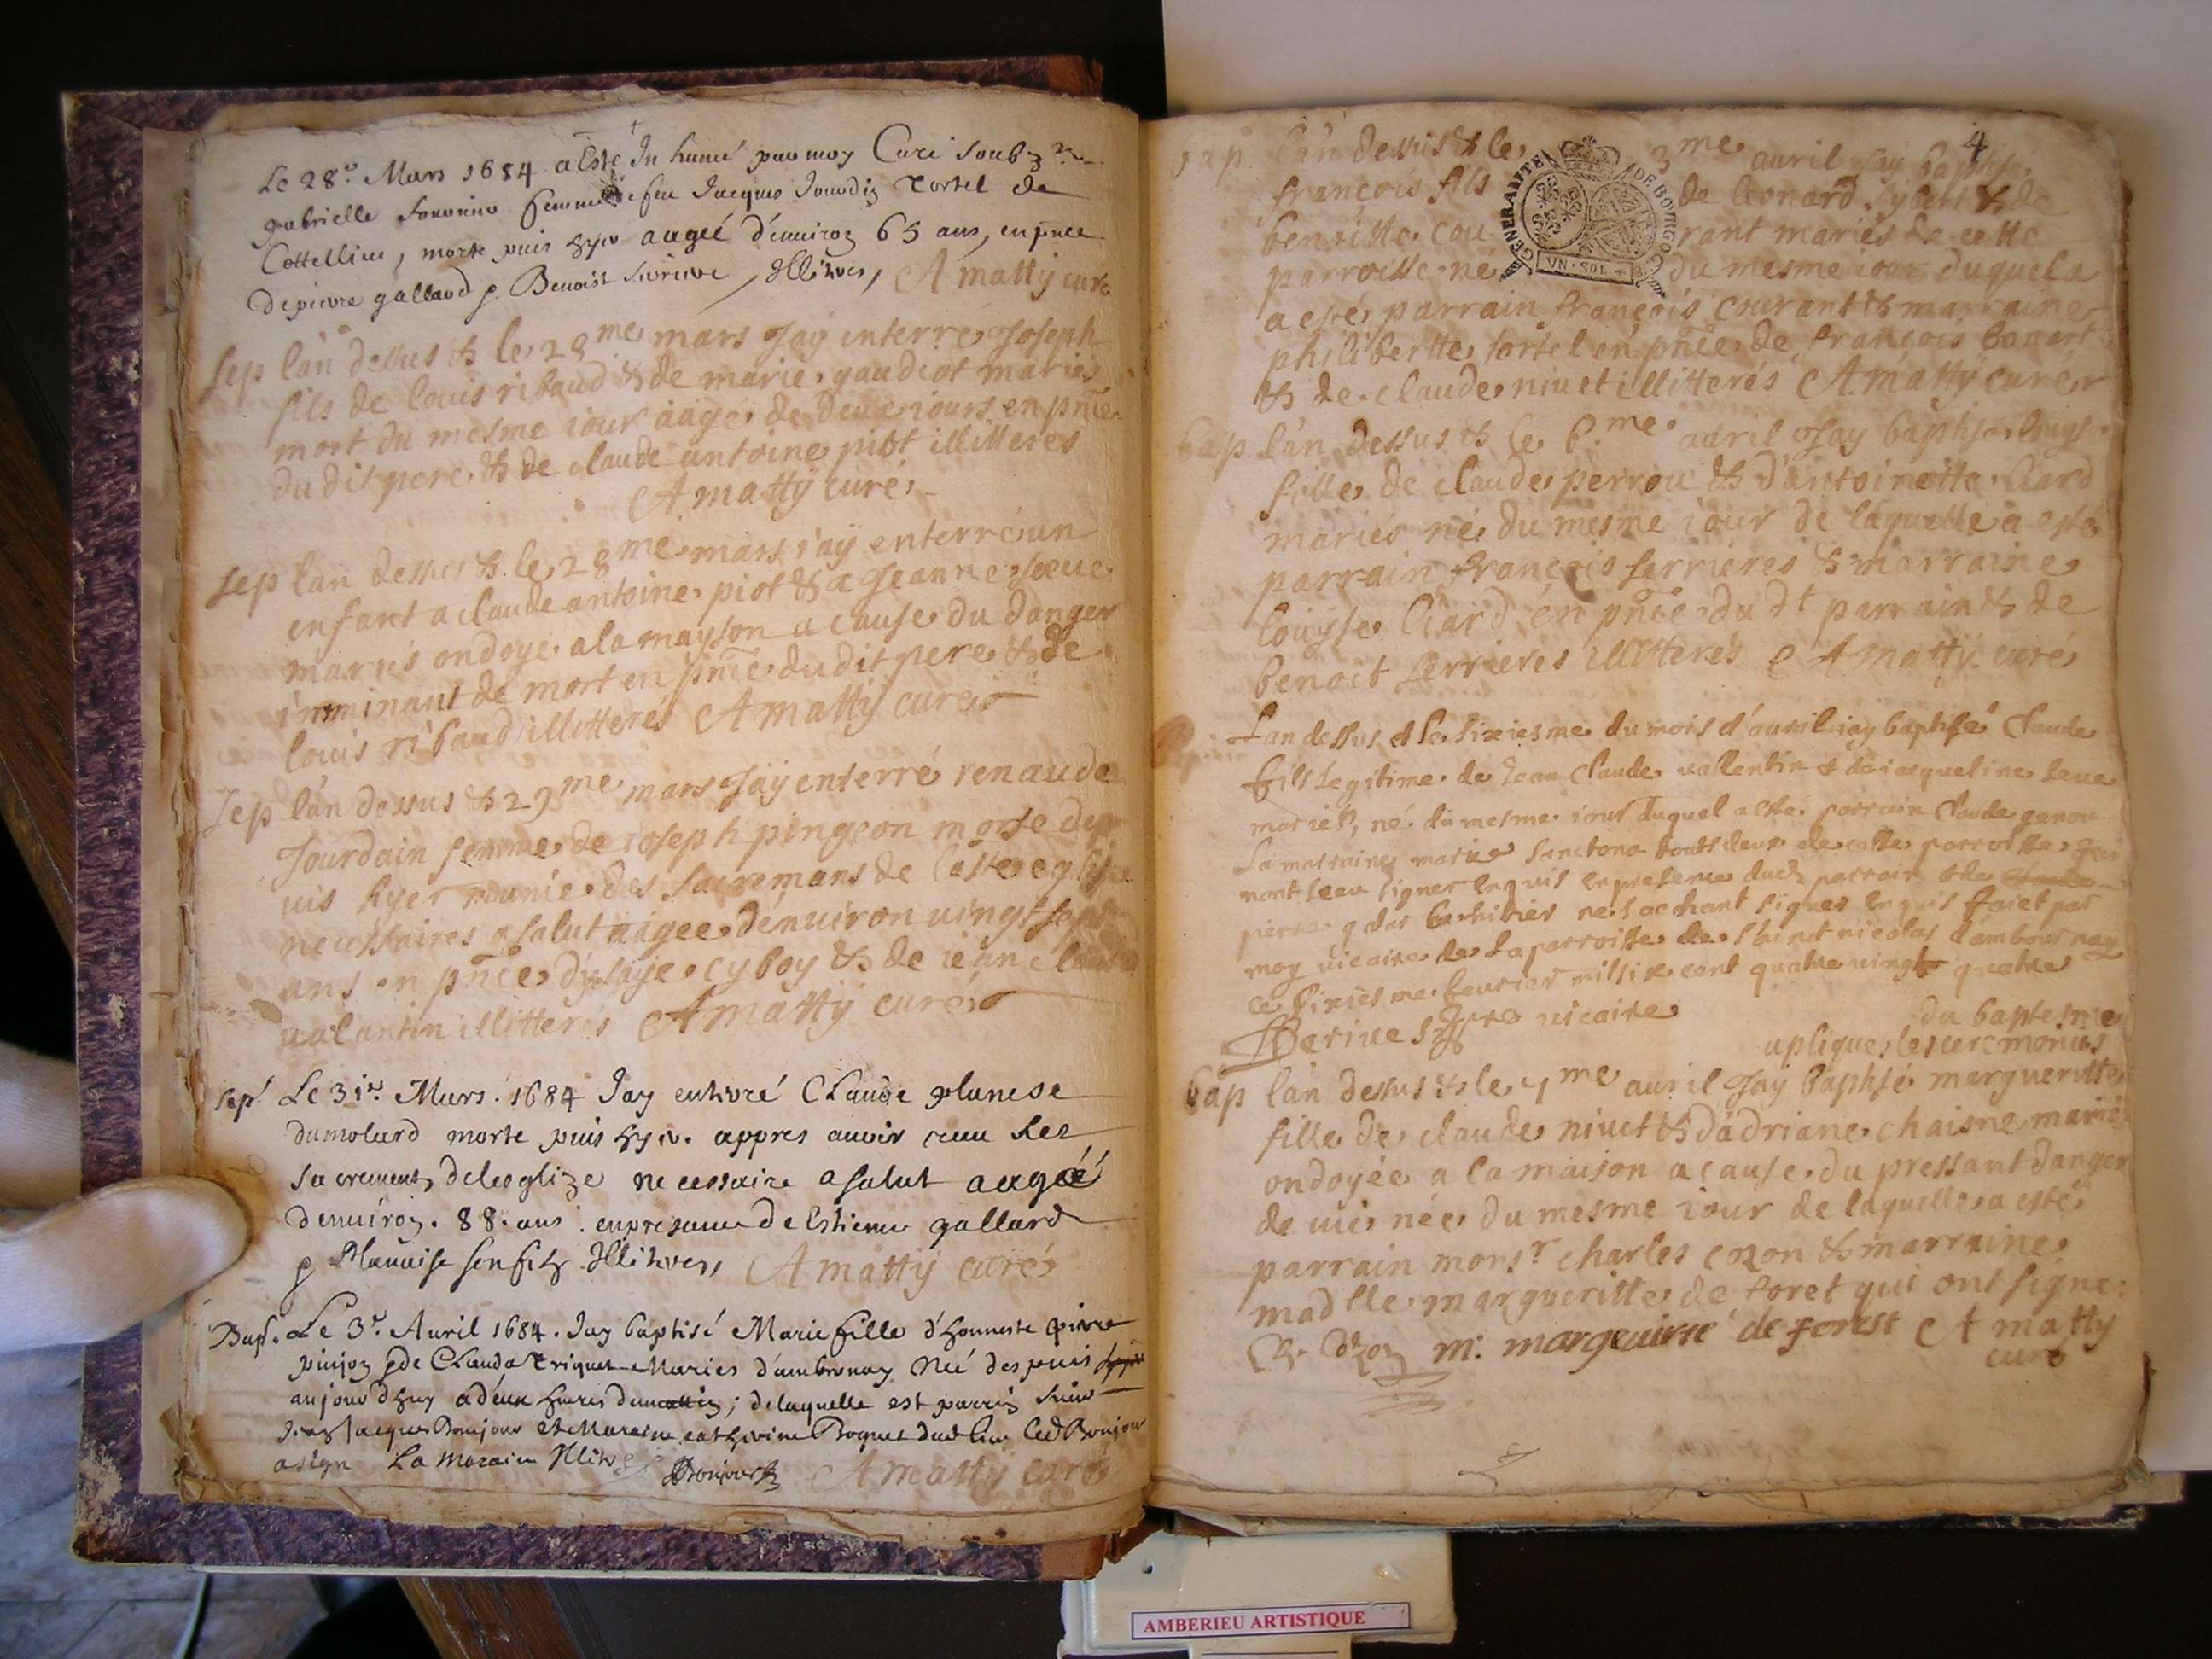 Le 28e Mars 1684 a Esté In humé par moy Curé soubz
gabrielle femme de feu Jacques Tortel de
Cottellieu, morte puis hyer augée d'enuiron 65 ans, en pnce
De pierre galland & Benoist Illiteres, A matty curé
sep lan dessus & le 28me mars Jay enterre Joseph
fils de louis ribaud & de marie gaudiot mariés
mort du mesme iour aagé de Deux iours en pnce
du dit pere & de claude antoine piot illitteres
A matty curé
sep lan dessus & le 28me mars i'ay enterré un
enfant a claude antoine piot & a Jeanne seue
mariés ondoyé a la mayson a cause du danger
imminant de mort en pnce du dit pere & de
louis ribaud illitteres A matty curé
sep lan dessus & 29me mars Jay enterré renaude
Jourdain femme de ioseph pingeon morte dep
uis hyer munie des sacremans de l'églize
necessaires a salut aagee d'enuiron uingt sept
ans en pnce d' cyboy & de iean claude
ualantin illitterés A matty curé
sep Le 31e Mars 1684 Jay enterré Claude
dumolard morte puis hyer appres auoir reeu les
sacrements de leglize necessaire a salut augéé
denuiron 88 ans en presance de Estienne gallard
& Blanaise son filz Illiteres A matty curé
Bap. Le 3e Auril 1684. Jay baptisé Marie fille d'honneste pierre
pinjon & de Clauda Triquet Mariés d'ambronay Neé despuis
aujourdhuy a deux heures du mattin; de laquelle est parrin sieur
Jean Jacques Bonjour et Maraine catherine Boquet dud lieu led Bonjour
a sign La Maraine Illit Bonjour A matty curé
4
bap. lan dessus & le 3me auril Jay baptisé
françois fils de leonard sybert & de
benoitte cou rant mariés de cette
parroisse né du mesme iour duquel a
GENERALITE DE BOVRGOG
VN · SOL
a esté parrain françois courant & marraine
philibertte tortel en pnce de françois bonart
& de claude niuet illitterés A matty curé
bap. lan dessus & le 6.me auril Jay baptisé louyse
fille de claude perrou & d'antoinette liard
mariés né du mesme iour de laquelle a esté
parrain françois ferrieres & marraine
louyse liard en pnce du dt parrain & de
benoit ferrieres illitterés A matty curé
Lan dessus & le sixiesme du mois d'auril iay baptisé Claude
fils legitime de Jean Claude vallentin & de iacqueline seue
mariés, né du mesme iour duquel a esté parrain Claude genou
la marraine marie touts deux de cette parroisse qui
nont sceu signer enquis en presence dud parrain & de
pierre ne sachant signer enquis faict par
moy uicaire de la parroisse de sainct nicolas d'ambournay
ce sixiesme feurier mil six cent quatre uingt quatre
Seriue ptre uicaire
du baptesme
apliqué les ceremonies
bap lan dessus & le 7me auril Jay baptisé margueritte
fille de claude niuet & d'adriane chaisne mariés
ondoyée a la maison a cause du pressant danger
de uie née du mesme iour de laquelle a esté
parrain monsr charles & marraine
madlle margueritte de foret qui ont signé
m: margeuirte de forest A matty
curé
AMBERIEU ARTISTIQUE